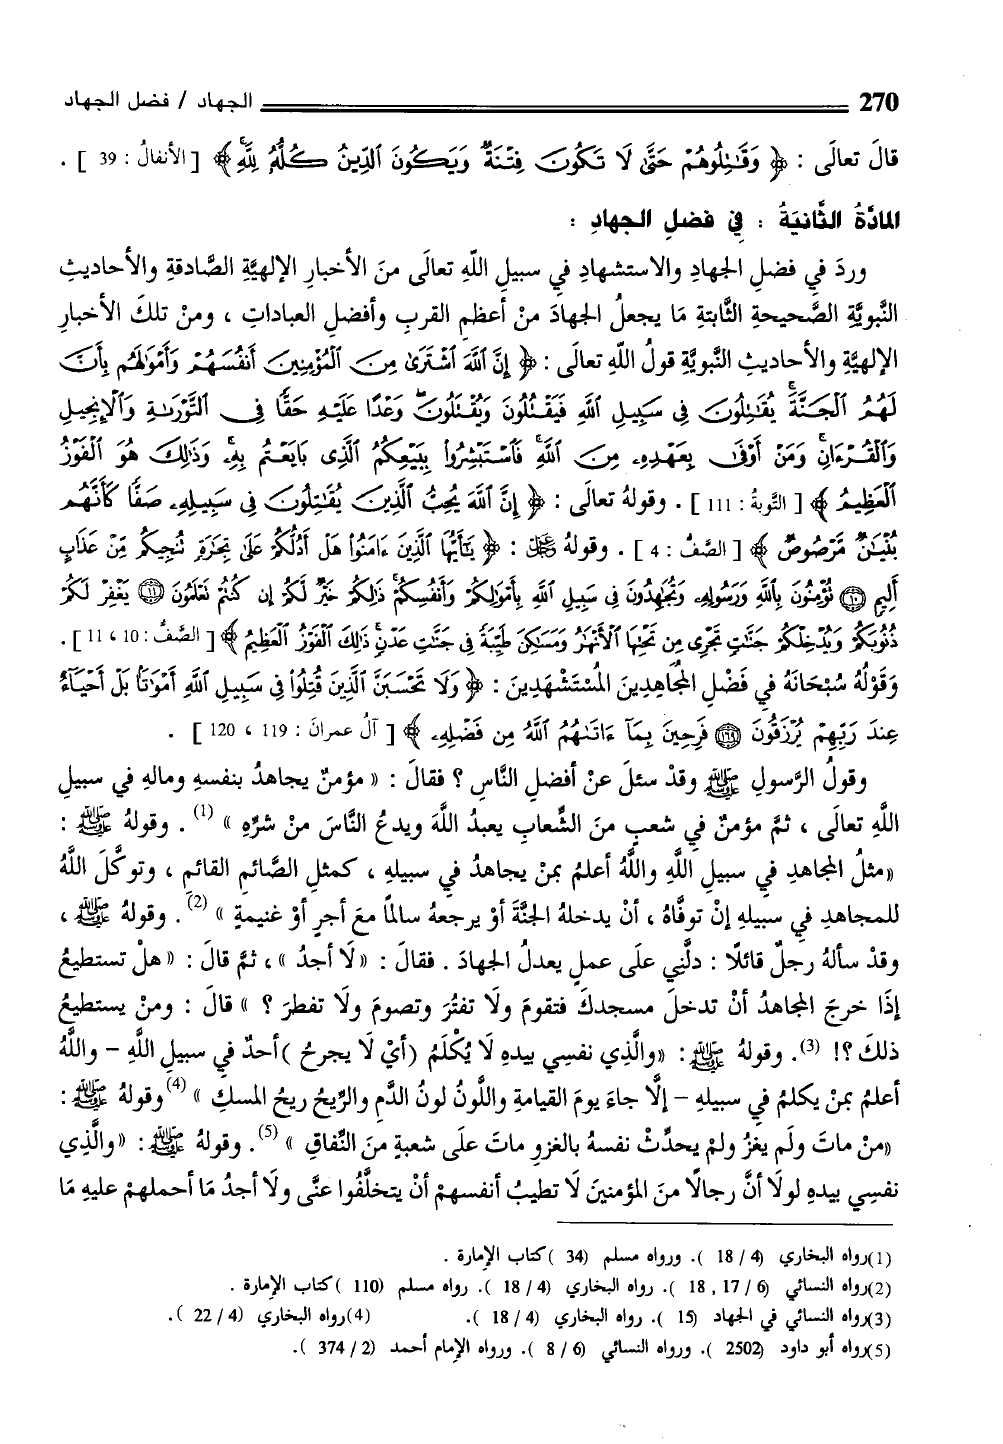 270 الجهاد / فضل الجهاد
قالَ تعالَى : ﴿ وَقَٰتِلُوهُمْ حَتَّىٰ لَا تَكُونَ فِتْنَةٌ وَيَكُونَ ٱلدِّينُ كُلُّهُۥ لِلَّهِ ﴾ [ الأنفالُ : 39 ] .
المادَّةُ الثَّانيَةُ : في فضلِ الجهادِ :
وردَ في فضلِ الجهادِ والاستشهادِ في سبيلِ اللَّهِ تعالَى منَ الأخبارِ الإلهيَّةِ الصَّادقةِ والأحاديثِ
النَّبويَّةِ الصَّحيحةِ الثَّابتةِ مَا يجعلُ الجهادَ منْ أعظمِ القربِ وأفضلِ العباداتِ ، ومنْ تلكَ الأخبارِ
الإلهيَّةِ والأحاديثِ النَّبويَّةِ قولُ اللَّهِ تعالَى : ﴿ إِنَّ ٱللَّهَ ٱشْتَرَىٰ مِنَ ٱلْمُؤْمِنِينَ أَنفُسَهُمْ وَأَمْوَٰلَهُم بِأَنَّ
لَهُمُ ٱلْجَنَّةَ يُقَٰتِلُونَ فِى سَبِيلِ ٱللَّهِ فَيَقْتُلُونَ وَيُقْتَلُونَ وَعْدًا عَلَيْهِ حَقًّا فِى ٱلتَّوْرَىٰةِ وَٱلْإِنجِيلِ
وَٱلْقُرْءَانِ وَمَنْ أَوْفَىٰ بِعَهْدِهِۦ مِنَ ٱللَّهِ فَٱسْتَبْشِرُوا۟ بِبَيْعِكُمُ ٱلَّذِى بَايَعْتُم بِهِۦ وَذَٰلِكَ هُوَ ٱلْفَوْزُ
ٱلْعَظِيمُ ﴾ [ التوبةُ : 111 ] . وقولهُ تعالَى : ﴿ إِنَّ ٱللَّهَ يُحِبُّ ٱلَّذِينَ يُقَٰتِلُونَ فِى سَبِيلِهِۦ صَفًّا كَأَنَّهُم
بُنْيَٰنٌ مَّرْصُوصٌ ﴾ [ الصَّفُّ : 4 ] . وقولهُ ﷻ : ﴿ يَٰٓأَيُّهَا ٱلَّذِينَ ءَامَنُوا۟ هَلْ أَدُلُّكُمْ عَلَىٰ تِجَٰرَةٍ تُنجِيكُم مِّنْ عَذَابٍ
أَلِيمٍ ⑩ تُؤْمِنُونَ بِٱللَّهِ وَرَسُولِهِۦ وَتُجَٰهِدُونَ فِى سَبِيلِ ٱللَّهِ بِأَمْوَٰلِكُمْ وَأَنفُسِكُمْ ذَٰلِكُمْ خَيْرٌ لَّكُمْ إِن كُنتُمْ تَعْلَمُونَ ⑪ يَغْفِرْ لَكُمْ
ذُنُوبَكُمْ وَيُدْخِلْكُمْ جَنَّٰتٍ تَجْرِى مِن تَحْتِهَا ٱلْأَنْهَٰرُ وَمَسَٰكِنَ طَيِّبَةً فِى جَنَّٰتِ عَدْنٍ ذَٰلِكَ ٱلْفَوْزُ ٱلْعَظِيمُ ﴾ [ الصَّفُّ : 10 ، 11 ] .
وَقَوْلُهُ سُبْحَانَهُ فِي فَضْلِ المُجَاهِدِينَ المُسْتَشْهَدِينَ : ﴿ وَلَا تَحْسَبَنَّ ٱلَّذِينَ قُتِلُوا۟ فِى سَبِيلِ ٱللَّهِ أَمْوَٰتًۢا بَلْ أَحْيَآءٌ
عِندَ رَبِّهِمْ يُرْزَقُونَ ١٦٩ فَرِحِينَ بِمَآ ءَاتَىٰهُمُ ٱللَّهُ مِن فَضْلِهِۦ ﴾ [ آلُ عمرانَ : 119 ، 120 ] .
وقولُ الرَّسولِ ﷺ وقدْ سئلَ عنْ أفضلِ النَّاسِ ؟ فقالَ : « مؤمنٌ يجاهدُ بنفسهِ ومالهِ في سبيلِ
اللَّهِ تعالَى ، ثمَّ مؤمنٌ في شعبٍ منَ الشِّعابِ يعبدُ اللَّهَ ويدعُ النَّاسَ منْ شرِّهِ » (1) . وقولهُ ﷺ :
«مثلُ المجاهدِ في سبيلِ اللَّهِ واللَّهُ أعلمُ بمنْ يجاهدُ في سبيلهِ ، كمثلِ الصَّائمِ القائمِ ، وتوكَّلَ اللَّهُ
للمجاهدِ في سبيلهِ إنْ توفَّاهُ ، أنْ يدخلهُ الجنَّةَ أوْ يرجعهُ سالمًا معَ أجرٍ أوْ غنيمةٍ » (2) . وقولهُ ﷺ ،
وقدْ سألهُ رجلٌ قائلًا : دلَّني علَى عملٍ يعدلُ الجهادَ . فقالَ : «لَا أجدُ » ، ثمَّ قالَ : « هلْ تستطيعُ
إذَا خرجَ المجاهدُ أنْ تدخلَ مسجدكَ فتقومَ ولَا تفتُرَ وتصومَ ولَا تفطرَ ؟ » قالَ : ومنْ يستطيعُ
ذلكَ ؟! (3). وقولهُ ﷺ : «والَّذي نفسِي بيدهِ لَا يُكْلَمُ (أيْ لَا يجرحُ )أحدٌ في سبيلِ اللَّهِ – واللَّهُ
أعلمُ بمنْ يكلمُ في سبيلهِ – إلَّا جاءَ يومَ القيامةِ واللَّونُ لونُ الدَّمِ والرِّيحُ ريحُ المسكِ » (4) وقولهُ ﷺ :
«منْ ماتَ ولَم يغزُ ولمْ يحدِّثْ نفسهُ بالغزوِ ماتَ علَى شعبةٍ منَ النِّفاقِ » (5). وقولهُ ﷺ : «والَّذي
نفسِي بيدهِ لولَا أنَّ رجالًا منَ المؤمنينَ لَا تطيبُ أنفسهمْ أنْ يتخلَّفُوا عنَّى ولَا أجدُ مَا أحملهمْ عليهِ مَا
(1)رواه البخاري (4 / 18 ). ورواه مسلم (34 )كتاب الإمارة .
(2)رواه النسائي (6 / 17 , 18 ). رواه البخاري (4 / 18 ). رواه مسلم (110 )كتاب الإمارة .
(3)رواه النسائي في الجهاد (15 ). رواه البخاري (4 / 18 ). (4)رواه البخاري (4 / 22 ).
(5)رواه أبو داود (2502 ). ورواه النسائي (6 / 8 ). ورواه الإمام أحمد (2 / 374 ).